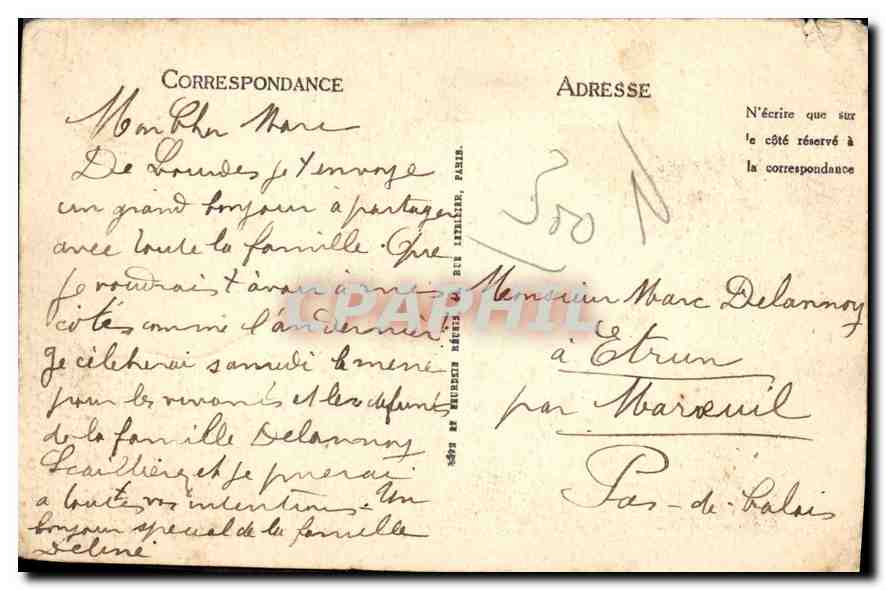 CORRESPONDANCE
Mon Cher Marc
De Lourdes je t'envoye
un grand bonjour à partager
avec toute la famille. Que
je voudrais t'avoir à mes
côtés comme l'an dernier.
Je célèbrerai samedi la messe
pour les vivants et les défunts
de la famille Delannoy
et je prierai
à toutes vos intentions. Un
bonjour special de la famille
Déliné
RUE LETELLIER, PARIS.
ADRESSE
N'écrire que sur
le côté réservé à
la correspondance
300 N
Monsieur Marc Delannoy
à Etrun
par Maroeuil
Pas-de-Calais
CPAPHIL